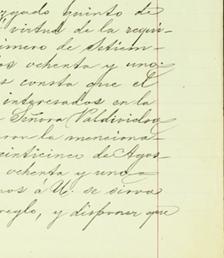 zgado quinto de
virtud de la requi-
imero de Setiem-
os ochenta y uno.
s consta que el
interesados en la
Señora Valdivielso
ron la menciona-
einticinco de Agos-
ochenta y uno
nos á U. se sirva
reglo, y disponer que